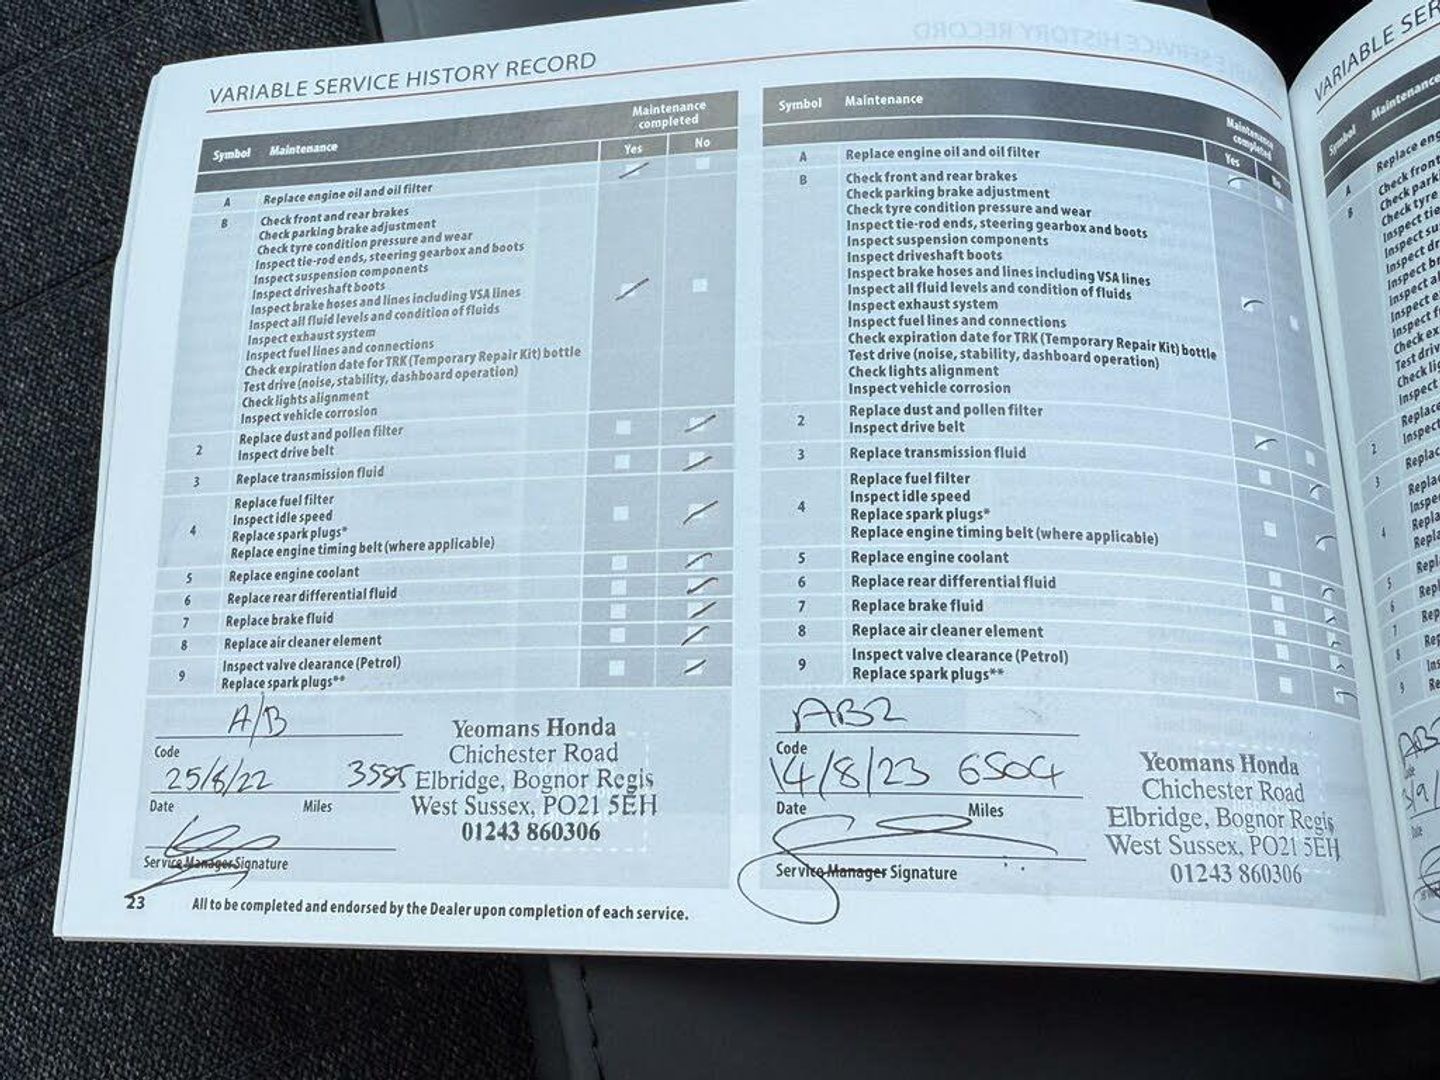 VARIABLE SERVICE HISTORY RECORD
Symbol Maintenance Maintenance completed
Yes No
A Replace engine oil and oil filter
B Check front and rear brakes
Check parking brake adjustment
Check tyre condition pressure and wear
Inspect tie-rod ends, steering gearbox and boots
Inspect suspension components
Inspect driveshaft boots
Inspect brake hoses and lines including VSA lines
Inspect all fluid levels and condition of fluids
Inspect exhaust system
Inspect fuel lines and connections
Check expiration date for TRK (Temporary Repair Kit) bottle
Test drive (noise, stability, dashboard operation)
Check lights alignment
Inspect vehicle corrosion
2 Replace dust and pollen filter
Inspect drive belt
3 Replace transmission fluid
Replace fuel filter
Inspect idle speed
4 Replace spark plugs*
Replace engine timing belt (where applicable)
5 Replace engine coolant
6 Replace rear differential fluid
7 Replace brake fluid
8 Replace air cleaner element
9 Inspect valve clearance (Petrol)
Replace spark plugs**
A/B
Code
25/8/22
Date Miles
Service Manager Signature
Yeomans Honda
Chichester Road
Elbridge, Bognor Regis
West Sussex, PO21 5EH
01243 860306
23 All to be completed and endorsed by the Dealer upon completion of each service.
Symbol Maintenance Maintenance completed
Yes No
A Replace engine oil and oil filter
B Check front and rear brakes
Check parking brake adjustment
Check tyre condition pressure and wear
Inspect tie-rod ends, steering gearbox and boots
Inspect suspension components
Inspect driveshaft boots
Inspect brake hoses and lines including VSA lines
Inspect all fluid levels and condition of fluids
Inspect exhaust system
Inspect fuel lines and connections
Check expiration date for TRK (Temporary Repair Kit) bottle
Test drive (noise, stability, dashboard operation)
Check lights alignment
Inspect vehicle corrosion
2 Replace dust and pollen filter
Inspect drive belt
3 Replace transmission fluid
Replace fuel filter
Inspect idle speed
4 Replace spark plugs*
Replace engine timing belt (where applicable)
5 Replace engine coolant
6 Replace rear differential fluid
7 Replace brake fluid
8 Replace air cleaner element
9 Inspect valve clearance (Petrol)
Replace spark plugs**
AB2
Code
14/8/23 6504
Date Miles
Service Manager Signature
Yeomans Honda
Chichester Road
Elbridge, Bognor Regis
West Sussex, PO21 5EH
01243 860306
VARIABLE SER
Symbol Maintenance